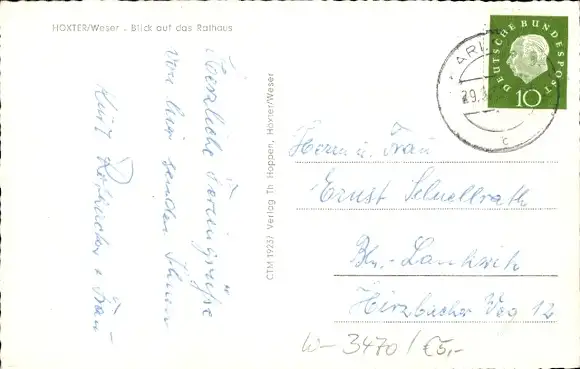 HÖXTER/Weser . Blick auf das Rathaus
Herzliche Feriengrüße
von hier senden Ihnen
Kurt
u. Frau
CTM 1923/ Verlag Th Hoppen, Höxter/Weser
DEUTSCHE BUNDESPOST
10
ARI
29.
c
Herrn u. Frau
Ernst Schnellrath
Bln.-Lankwitz
Hirzbacher Weg 12
3470/€5,-